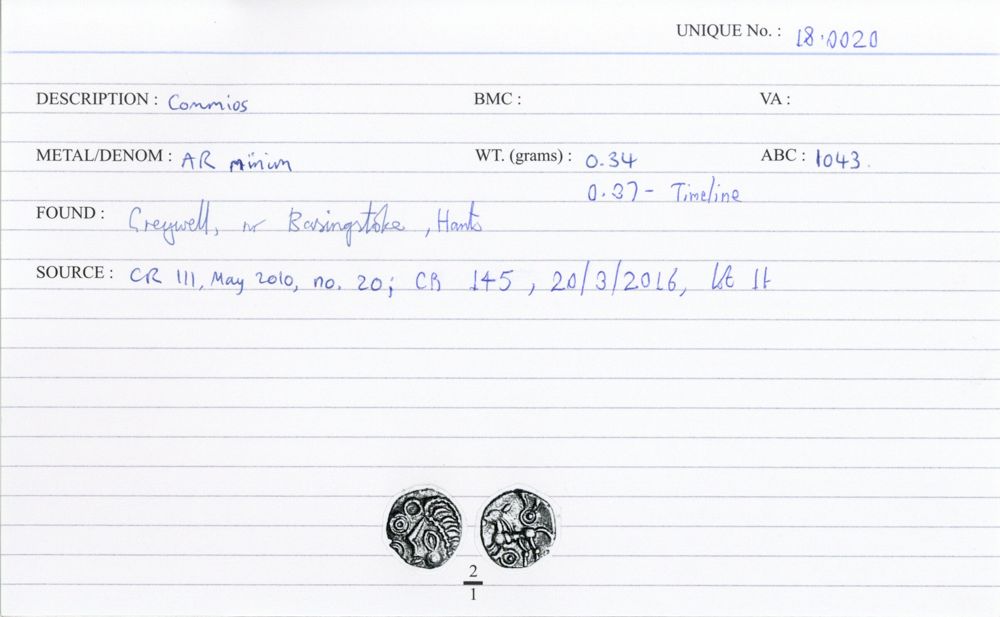 UNIQUE No. : 18.0020
DESCRIPTION : Commios BMC : VA :
METAL/DENOM : AR minim WT. (grams) : 0.34 ABC : 1043.
0.37 - Timeline
FOUND : Greywell, nr Basingstoke, Hants
SOURCE : CR 111, May 2010, no. 20; CR 145, 20/3/2016, lot 1t
2
1